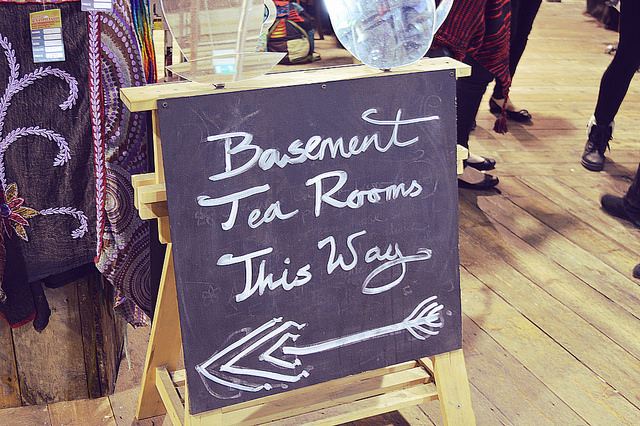 Basement
Tea Rooms
This Way